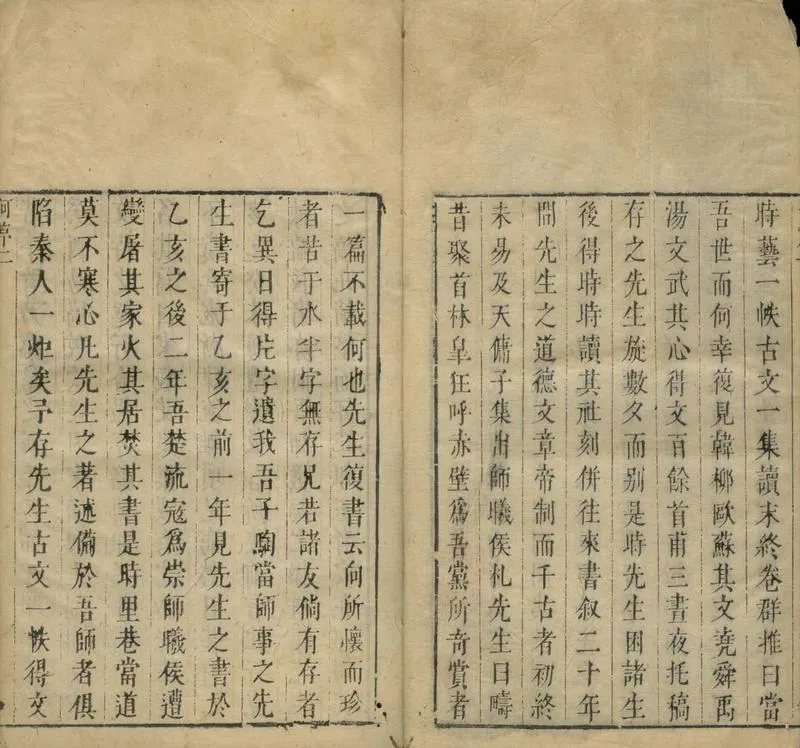 時藝一帙古文一集讀未終卷群推曰當
吾世而何幸復見韓柳歐蘇其文堯舜禹
湯文武其心得文百餘首甫三晝夜托稿
存之先生旋數夕而别是時先生困諸生
後得時時讀其社刻併往來書叙二十年
間先生之道德文章帝制而千古者初終
未易及天傭子集出師曦侯札先生曰疇
昔聚首林臯狂呼赤壁爲吾黨所奇賞者
一篇不載何也先生復書云向所懷而珍
者苦于水半字無存兄若諸友倘有存者
乞異日得片字遺我吾子駒當師事之先
生書寄于乙亥之前一年見先生之書於
乙亥之後二年吾楚流寇爲祟師曦侯遭
變屠其家火其居焚其書是時里巷當道
莫不寒心凡先生之著述備於吾師者俱
陷秦人一炬矣予存先生古文一帙得文